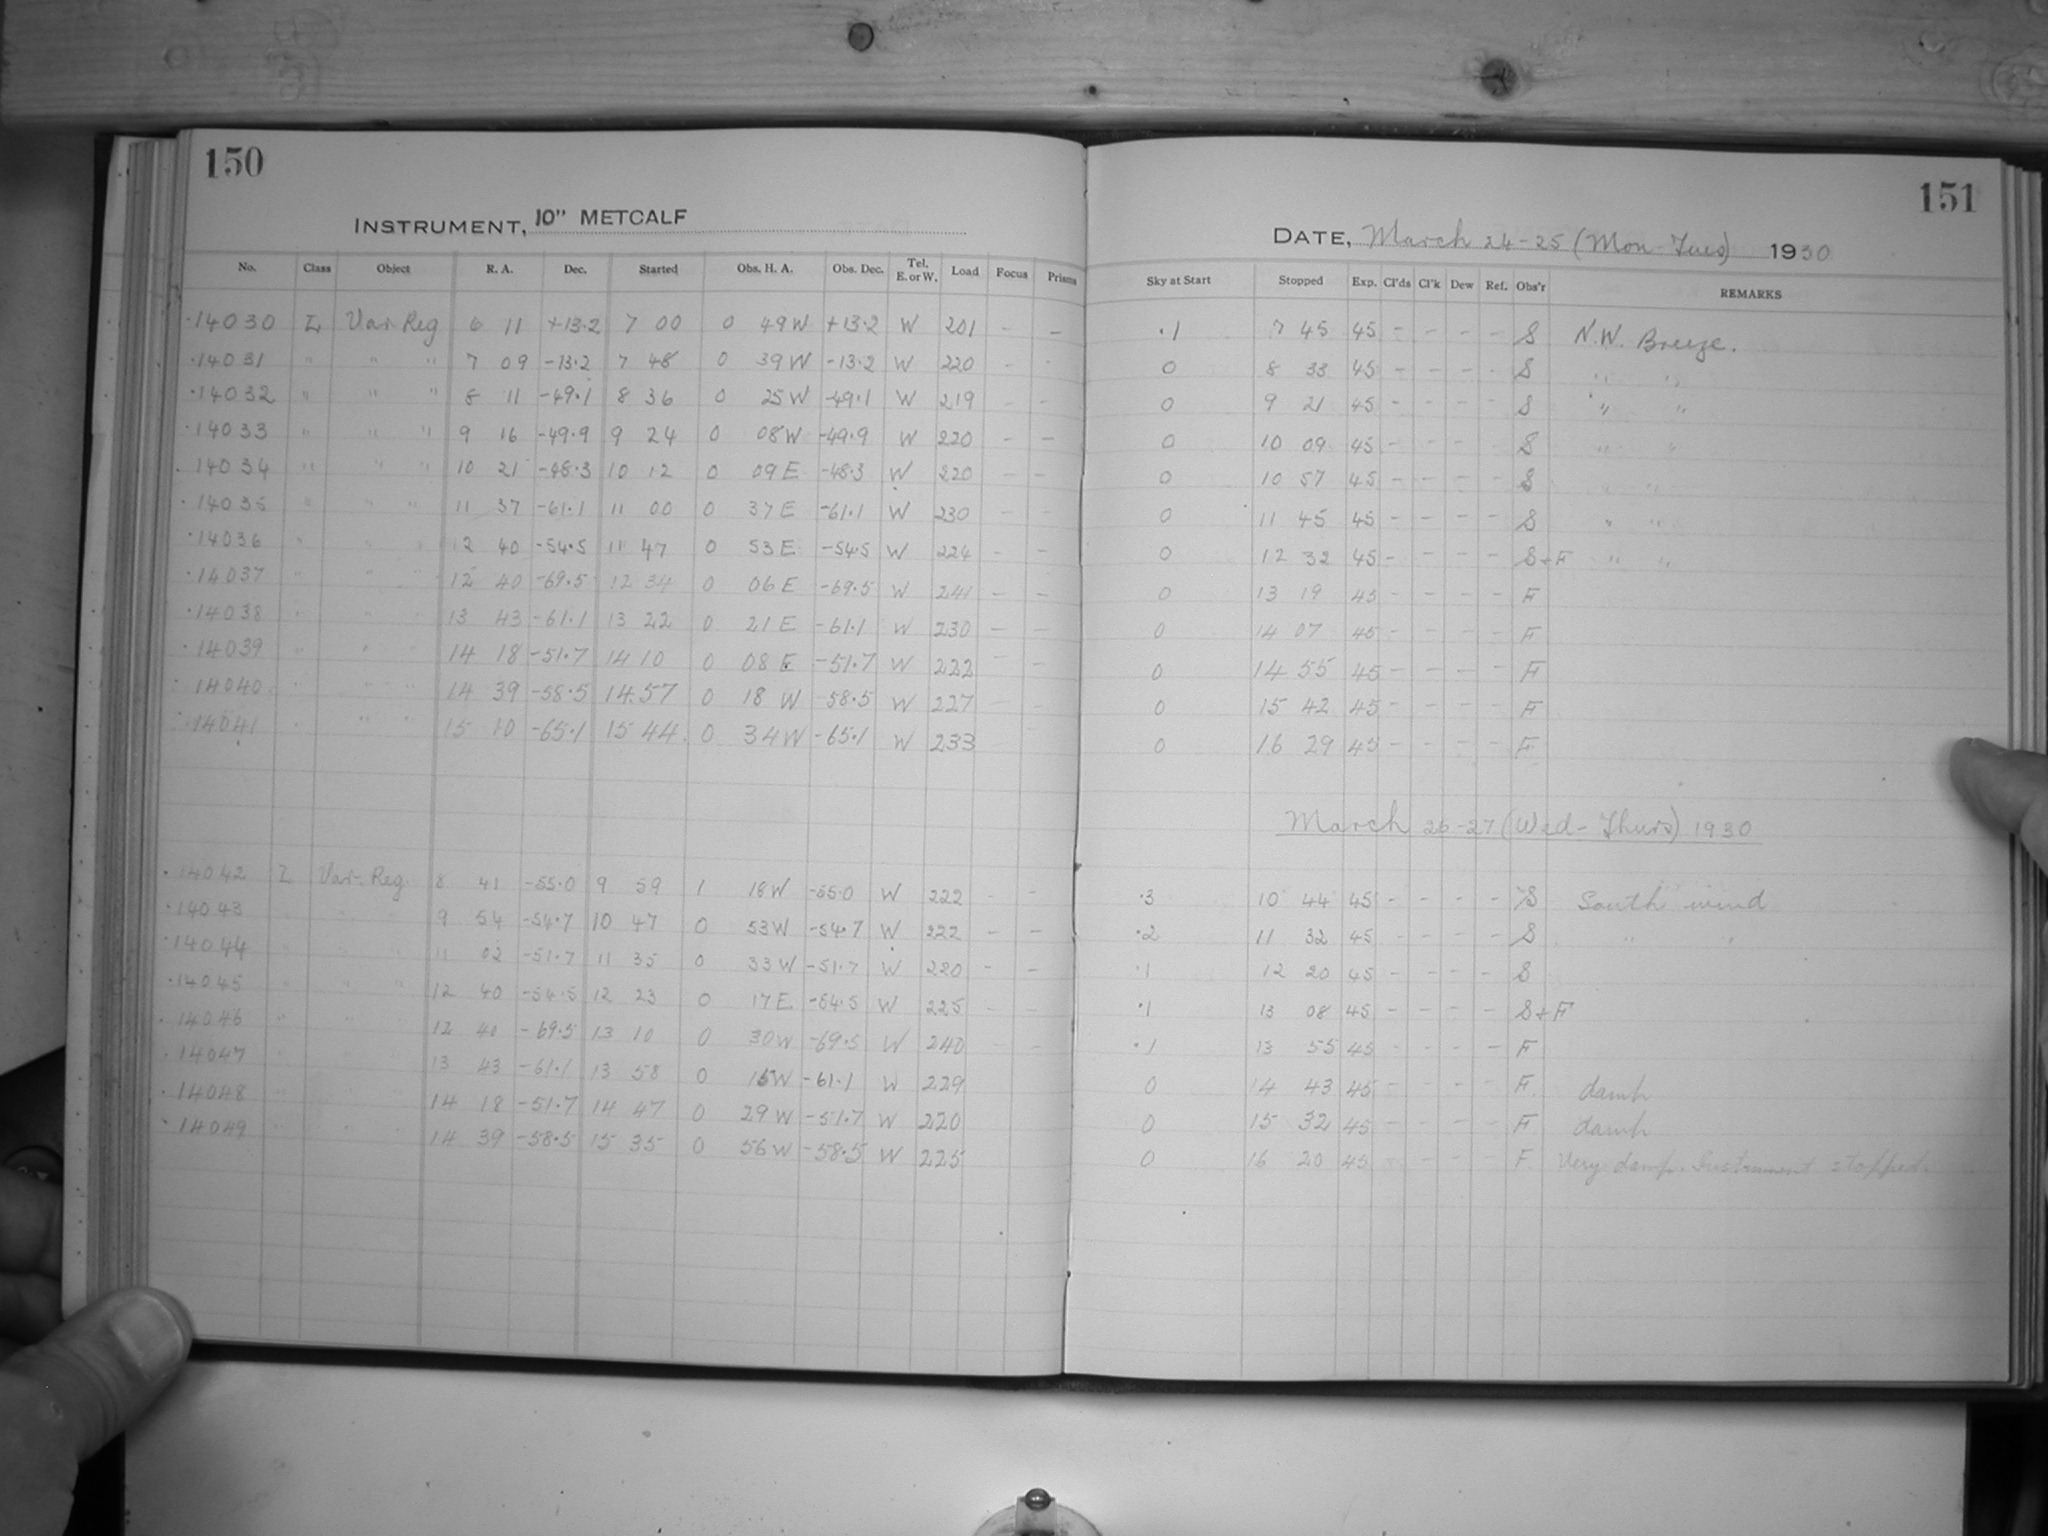 150
INSTRUMENT, 10" METCALF
No. Class Object R. A. Dec. Started Obs. H. A. Obs. Dec. Tel. E. or W. Load Focus Prisms
·14030 L Var Reg 6 11 +13·2 7 00 0 49 W +13·2 W 201 – –
·14031 " " " 7 09 -13·2 7 48 0 39 W -13·2 W 220 – –
·14032 " " " 8 11 -49·1 8 36 0 25 W -49·1 W 219 – –
·14033 " " " 9 16 -49·9 9 24 0 08 W -49·9 W 220 – –
·14034 " " " 10 21 -48·3 10 12 0 09 E -48·3 W 220 – –
·14035 " " " 11 37 -61·1 11 00 0 37 E -61·1 W 230 – –
·14036 " " " 12 40 -54·5 11 47 0 53 E -54·5 W 224 – –
·14037 " " " 12 40 -69·5 12 34 0 06 E -69·5 W 241 – –
·14038 " " " 13 43 -61·1 13 22 0 21 E -61·1 W 230 – –
·14039 " " " 14 18 -51·7 14 10 0 08 E -51·7 W 222 – –
·14040 " " " 14 39 -58·5 14 57 0 18 W -58·5 W 227 – –
·14041 " " " 15 10 -65·1 15 44 0 34 W -65·1 W 233
·14042 L Var. Reg. 8 41 -55·0 9 59 1 18 W -55·0 W 222 – –
·14043 " " " 9 54 -54·7 10 47 0 53 W -54·7 W 222 – –
·14044 " " " 11 02 -51·7 11 35 0 33 W -51·7 W 220 – –
·14045 " " " 12 40 -54·5 12 23 0 17 E -54·5 W 225 – –
·14046 " " " 12 40 -69·5 13 10 0 30 W -69·5 W 240 – –
·14047 " " " 13 43 -61·1 13 58 0 15 W -61·1 W 229
·14048 " " " 14 18 -51·7 14 47 0 29 W -51·7 W 220
·14049 " " " 14 39 -58·5 15 35 0 56 W -58·5 W 225
151
DATE, March 24-25 (Mon-Tues) 1930
Sky at Start Stopped Exp. Cl'ds Cl'k Dew Ref. Obs'r REMARKS
·1 7 45 45 – – – – S N.W. Breeze.
0 8 33 45 – – – – S " "
0 9 21 45 – – – – S " "
0 10 09 45 – – – – S " "
0 10 57 45 – – – – S " "
0 11 45 45 – – – – S " "
0 12 32 45 – – – – S+F " "
0 13 19 45 – – – – F
0 14 07 45 – – – – F
0 14 55 45 – – – – F
0 15 42 45 – – – – F
0 16 29 45 – – – – F
March 26-27 (Wed-Thurs) 1930
·3 10 44 45 – – – – S South wind
·2 11 32 45 – – – – S " "
·1 12 20 45 – – – – S
·1 13 08 45 – – – – S+F
·1 13 55 45 – – – – F
0 14 43 45 – – – – F. damp
0 15 32 45 – – – – F damp
0 16 20 45 – – – – F. Very damp. Instrument stopped.